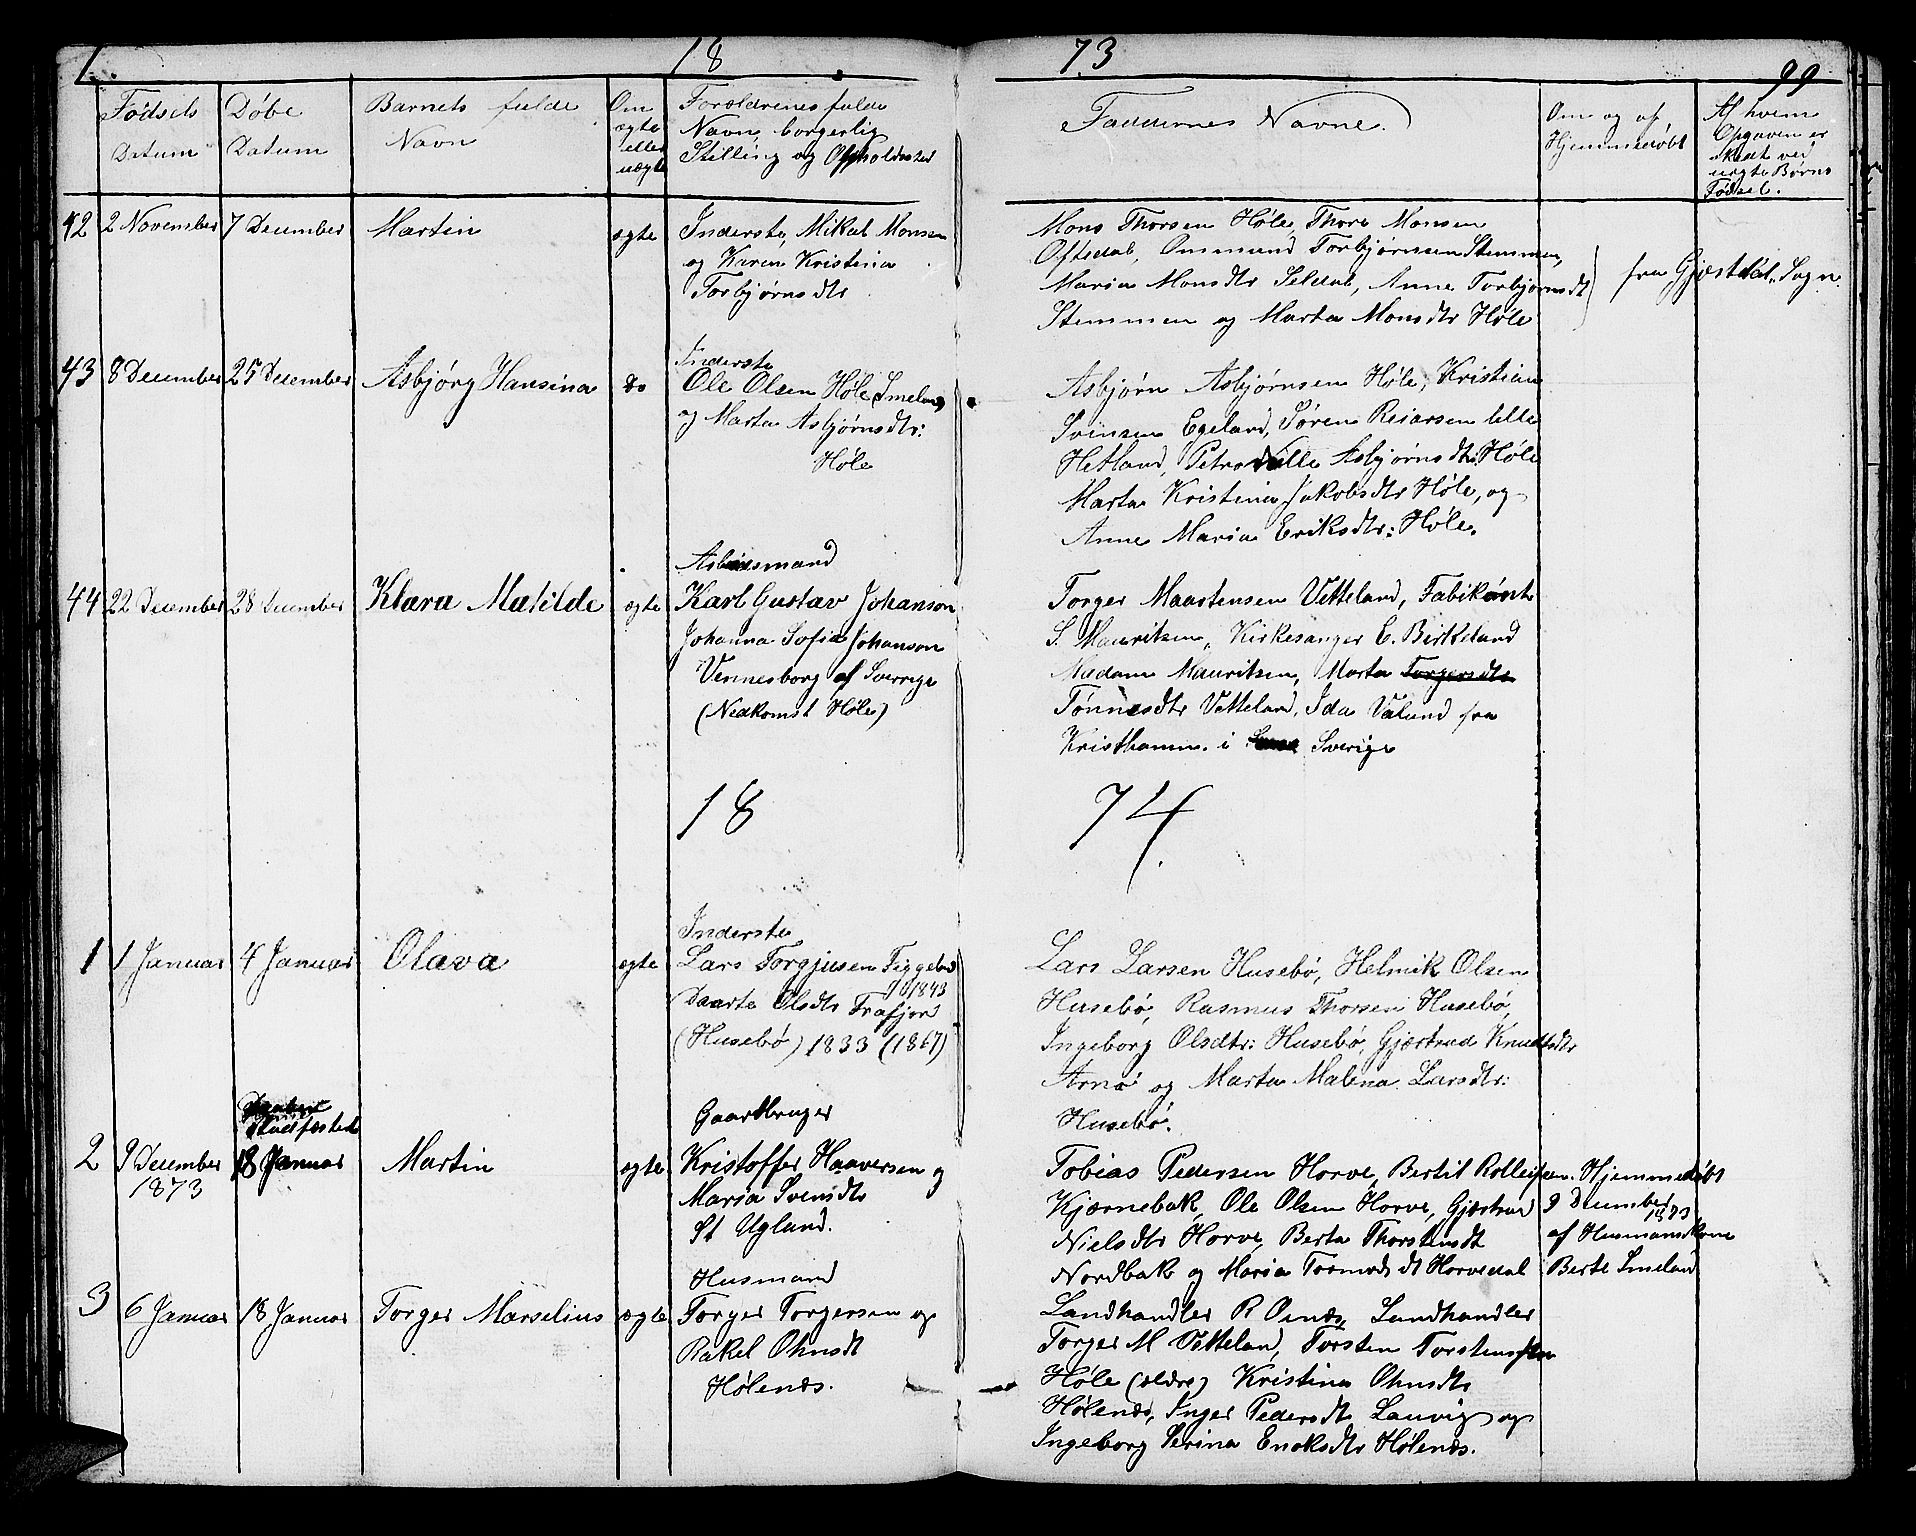 1. 18 73 99
Fødsels Datum
Døbe Datum
Barnets fulde Navn
Om ægte eller uægte
Forældrenes fulde
Navn, borgerlig
Stilling og Opholdssted
Faddernes Navne.
Om og af
Hjemmedøbt
Af hvem
Opgaven er
skedt ved
uægte Børns
Fødsel.
42 2 November 7 December Martin ægte
Inderste, Mikal Monsen
og Karen Kristina
Torbjørnsdtr
Mons Thorsen Høle, Thore Monsen
Oftedal, Ommund Torbjørnsen Stemmen,
Maria Monsdtr Seldal, Anne Torbjørnsdt
Stemmen og Marta Monsdtr Høle
fra Gjestdal Sogn
43 8 December 25 December Asbjørg Hansina do
Inderste
Ole Olsen Høle (Imeland)
og Marta Asbjørnsdtr:
Høle
Asbjørn Asbjørnsen Høle, Kristian
Svensen Egeland, Søren Reiarsen lille
Hetland, Petronille Asbjørnsdtr: Høle
Marta Kristina Jakobsdtr Høle, og
Anne Maria Eriksdtr: Høle.
44 22 December 28 December Klara Matilde ægte
Karl Gustav Johanson
Johanna Sofia Johanson
Vennesborg af Sverrige
(Nedkomst Høle)
Torger Maartensen Vetteland, Fabikant
S. Mauritsen, Kirkesanger E. Birkeland
Madam Mauritsen, Marta Torgersdtr
Tønnesdtr Vetteland, Ida Valund fra
Kristhamn i Sverige
18 74
1 1 Januar 4 Januar Olava ægte
Inderste
Lars Torgjusen Tiggebø
1843
Daarte Olsdtr Frafjor
(Husebø) 1833 (1867)
Lars Larsen Husebø, Helmik Olsen
Husebø, Rasmus Thorsen Husebø,
Ingeborg Olsdtr: Husebø, Gjertrud Knudsdtr
Arnø og Marta Malena Larsdtr:
Husebø.
Stadfæstede
2 9 December 1873 18 Januar Martin ægte
Gaardbruger
Kristoffer Haaversen og
Maria Svensdtr
St Ugland.
Tobias Pedersen Horve, Bertil Rolleifsen
Kjærnebak, Ole Olsen Horve, Gjertrud
Nielsdtr Horve, Berta Thorstensdt
Nordbak og Maria Tormodsdt Horvedal
Hjemmedøbt
9 December 1873
af Husmandskone
Berte Imeland
3 6 Januar 18 Januar Torger Marselius ægte
Husmand
Torger Torgersen og
Rakel Ohnsdt
Hølenæs.
Landhandler R Oenæs, Landhandler
Torger M Vetteland, Torsten Torstensen
Høle (ældre) Kristina Ohnsdtr
Hølenæs, Inger Pedersdtr Lauvig og
Ingeborg Serina Enoksdtr Hølenæs.